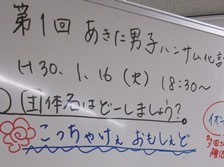 第1回 あきた男子ハンサム化計
H30.1.16(火) 18:30〜
団体名はどーしましょう?
こっちゃけん おもしぇど